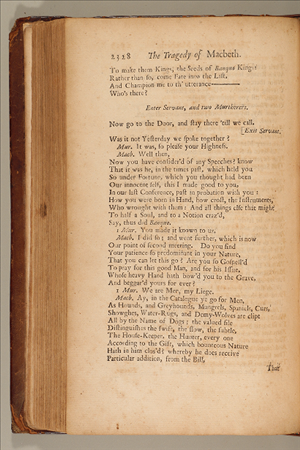 2328 The Tragedy of Macbeth.
To make them Kings, the Seeds of Banquo Kings!
Rather than so, come Fate into the List,
And Champion me to th' utterance———
Who's there?
Enter Servant, and two Murtherers.
Now go to the Door, and stay there 'till we call.
[Exit Servant.
Was it not Yesterday we spoke together?
Mur. It was, so please your Highness.
Macb. Well then,
Now you have consider'd of my Speeches? know
That it was he, in the times past, which held you
So under Fortune, which you thought had been
Our innocent self, this I made good to you,
In our last Conference, past in probation with you:
How you were born in Hand, how crost, the Instruments,
Who wrought with them: And all things else that might
To half a Soul, and to a Notion craz'd,
Say, thus did Banquo.
1 Mur. You made it known to us.
Macb. I did so; and went further, which is now
Our point of second meeting. Do you find
Your patience so predominant in your Nature,
That you can let this go? Are you so Gospell'd
To pray for this good Man, and for his Issue,
Whose heavy Hand hath bow'd you to the Grave,
And beggar'd yours for ever?
1 Mur. We are Men, my Liege.
Macb. Ay, in the Catalogue ye go for Men,
As Hounds, and Greyhounds, Mungrels, Spaniels, Curs,
Showghes, Water-Rugs, and Demy-Wolves are clipt
All by the Name of Dogs; the valued file
Distinguishes the swift, the slow, the subtle,
The House-Keeper, the Hunter, every one
According to the Gift, which bounteous Nature
Hath in him clos'd; whereby he does receive
Particular addition, from the Bill,
That